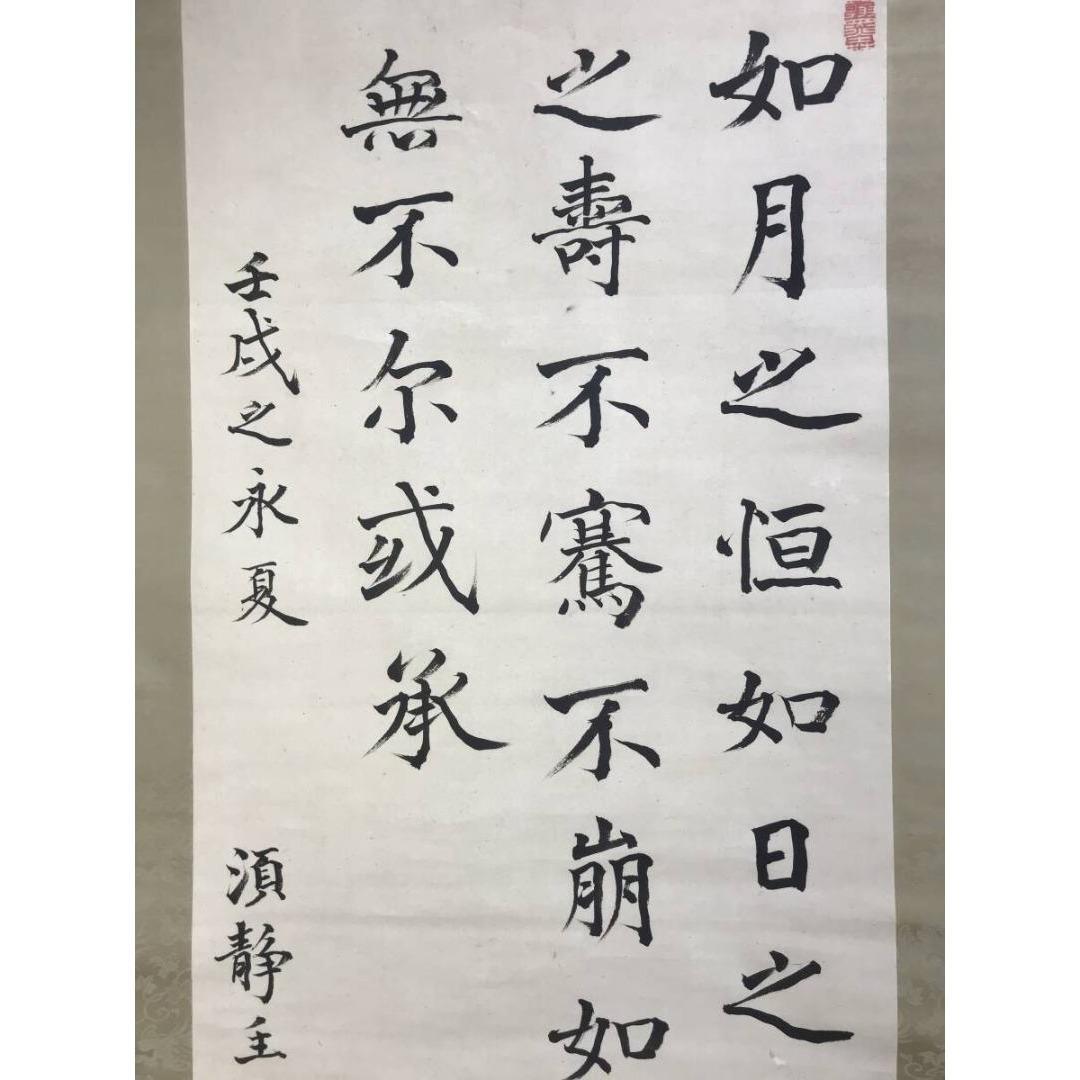 如月之恒如日之
之壽不騫不崩如
無不尔或承
壬戌之永夏
須静主